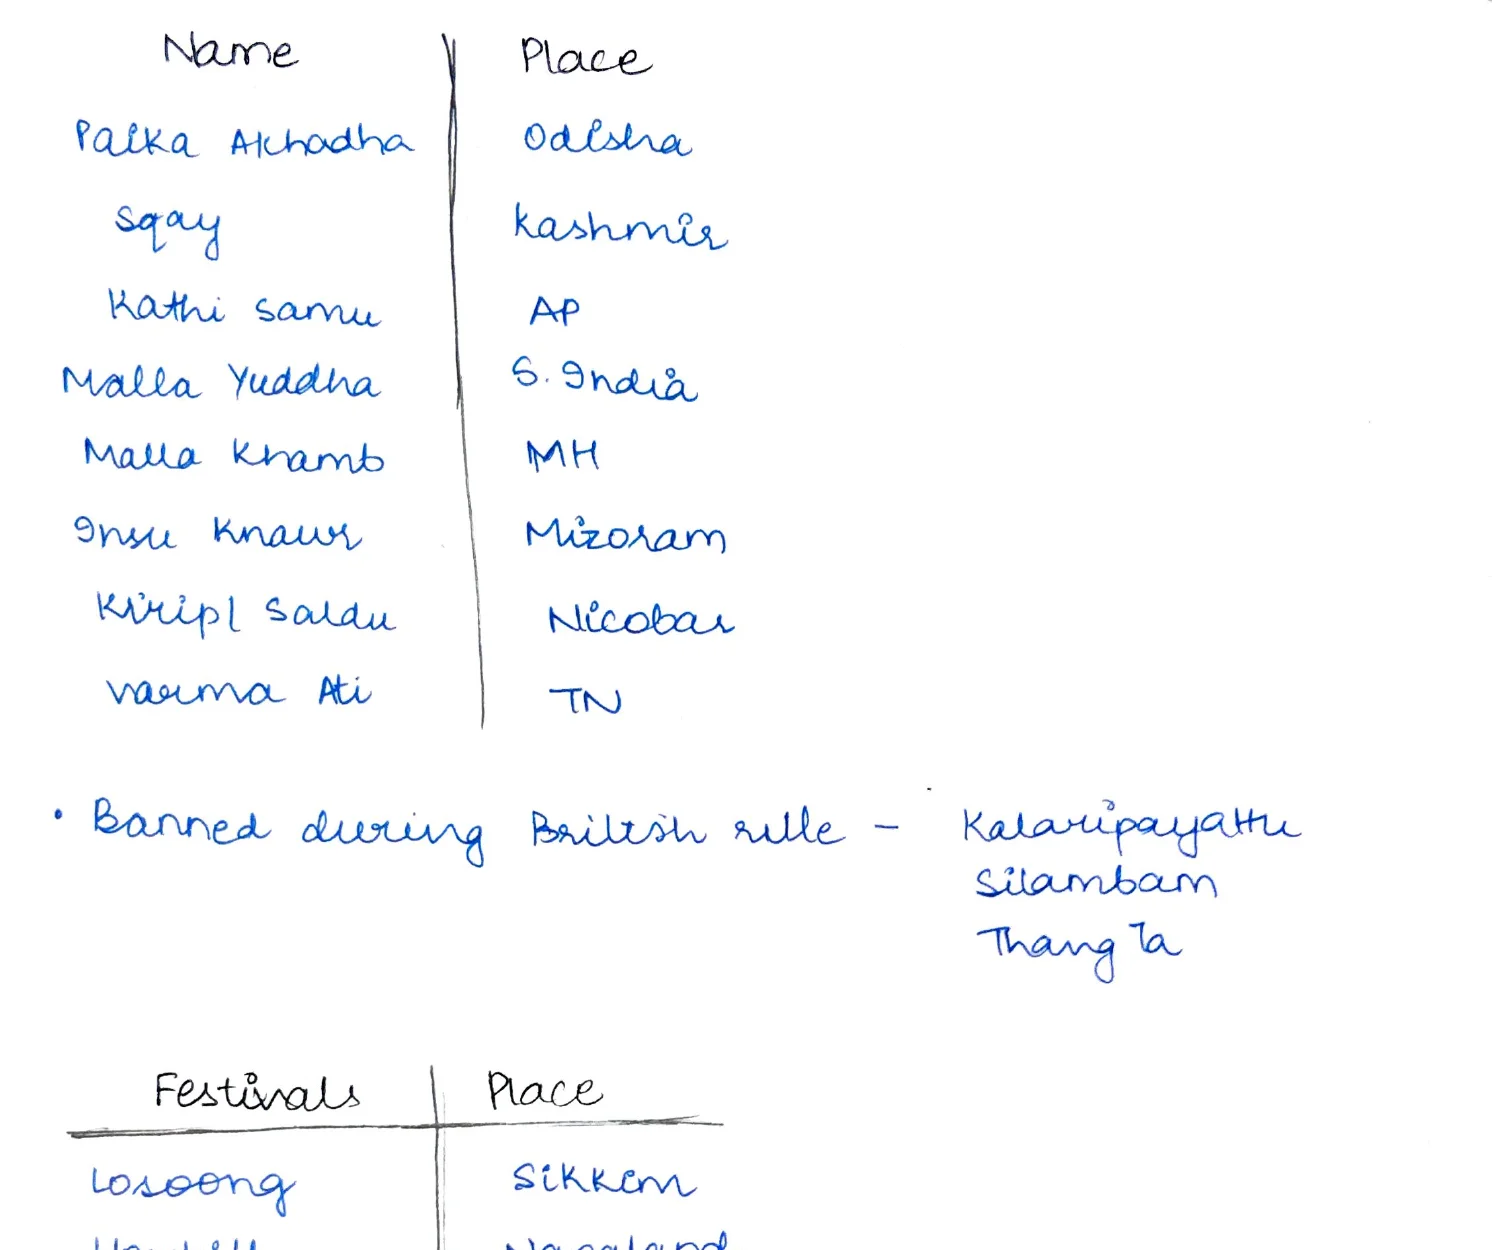 Name Place
Paika Akhadha Odisha
Sqay Kashmir
Kathi Samu AP
Malla Yuddha S. India
Malla Khamb MH
Insu Knawr Mizoram
Kiripl Saldu Nicobar
Varma Ati TN
• Banned during British rule - Kalaripayattu
Silambam
Thang Ta
Festivals Place
Losoong Sikkim
Nagaland